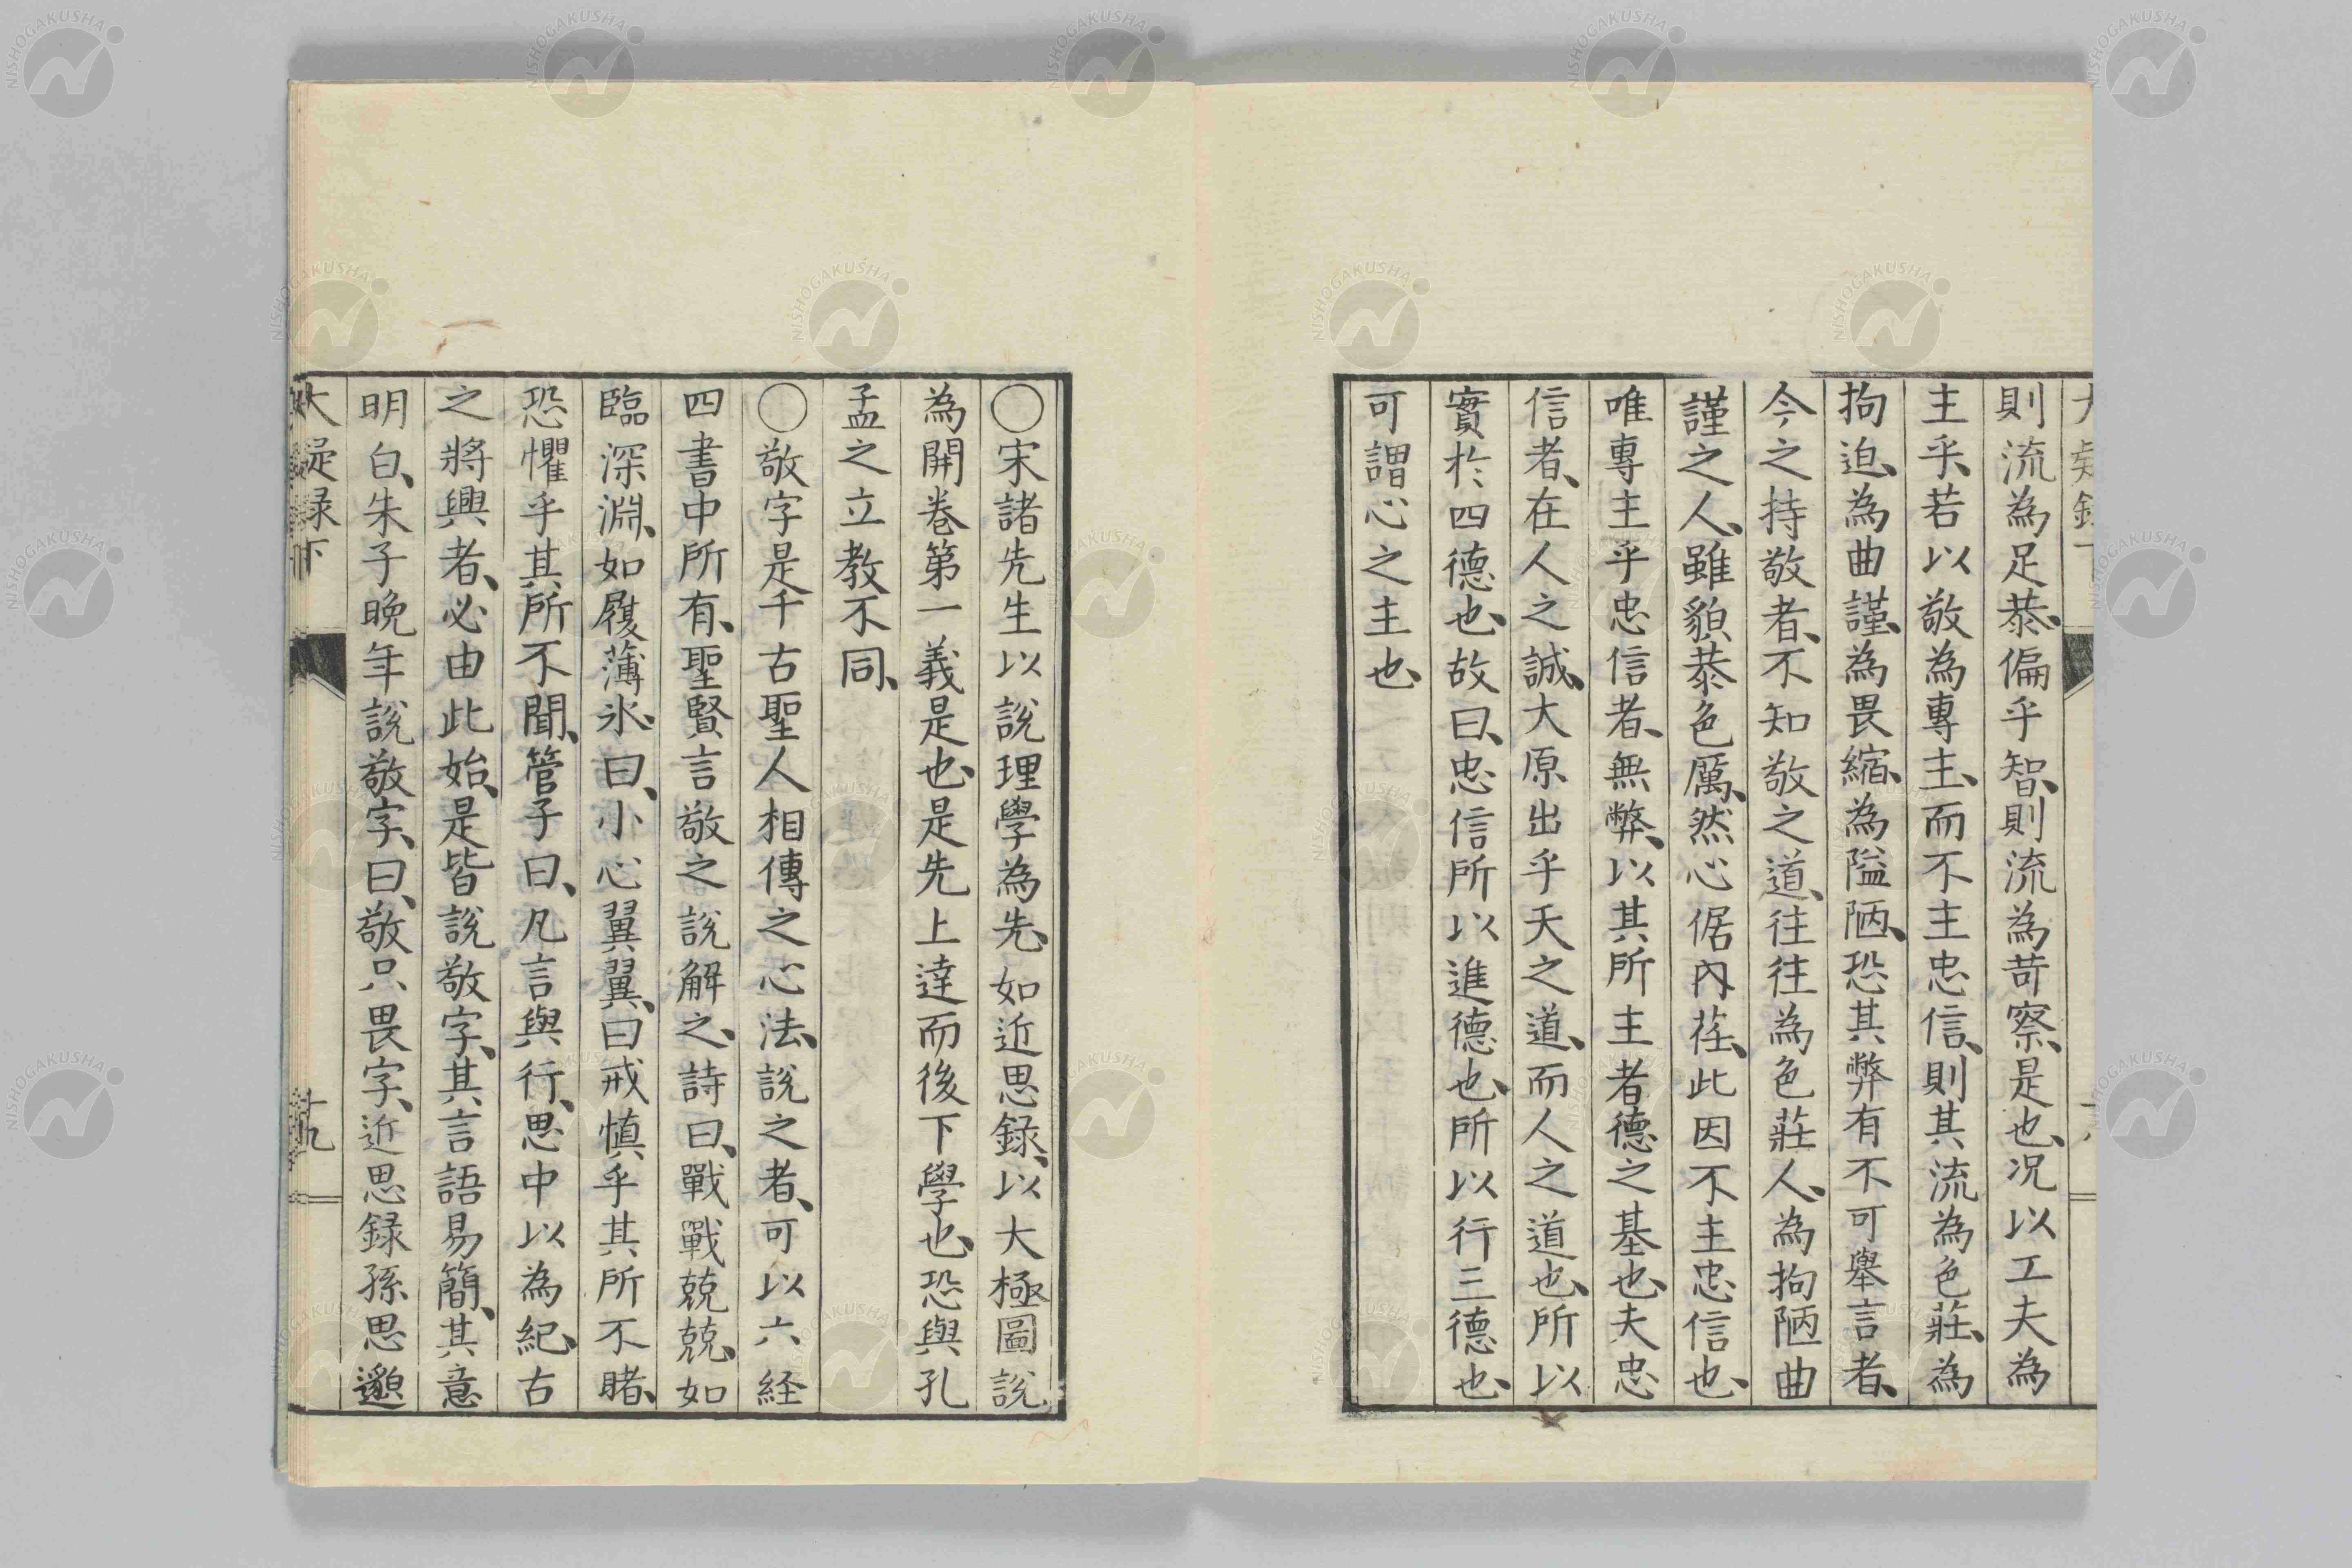 則流為足恭、偏乎智、則流為苛察、是也、況以工夫為
主乎、若以敬為專主、而不主忠信、則其流為色莊、為
拘迫、為曲謹、為畏縮、為隘陋、恐其弊有不可舉言者、
今之持敬者、不知敬之道、往往為色莊人、為拘陋曲
謹之人、雖貌恭色厲、然心倨內荏、此因不主忠信也、
唯專主乎忠信者、無弊、以其所主者德之基也、夫忠
信者、在人之誠、大原出乎天之道、而人之道也、所以
實於四德也、故曰、忠信所以進德也、所以行三德也、
可謂心之主也、
〇宋諸先生以說理學為先、如近思錄、以大極圖說
為開卷第一義是也、是先上達而後下學也、恐與孔
孟之立教不同、
〇敬字是千古聖人相傳之心法、說之者、可以六経
四書中所有、聖賢言敬之說解之、詩曰、戰戰兢兢、如
臨深淵、如履薄氷、曰、小心翼翼、曰戒慎乎其所不睹、
恐懼乎其所不聞、管子曰、凡言與行、思中以為紀、古
之將興者、必由此始、是皆說敬字、其言語易簡、其意
明白、朱子晚年說敬字、曰、敬只畏字、近思録孫思邈
大疑録下
十九
NISHOGAKUSHA